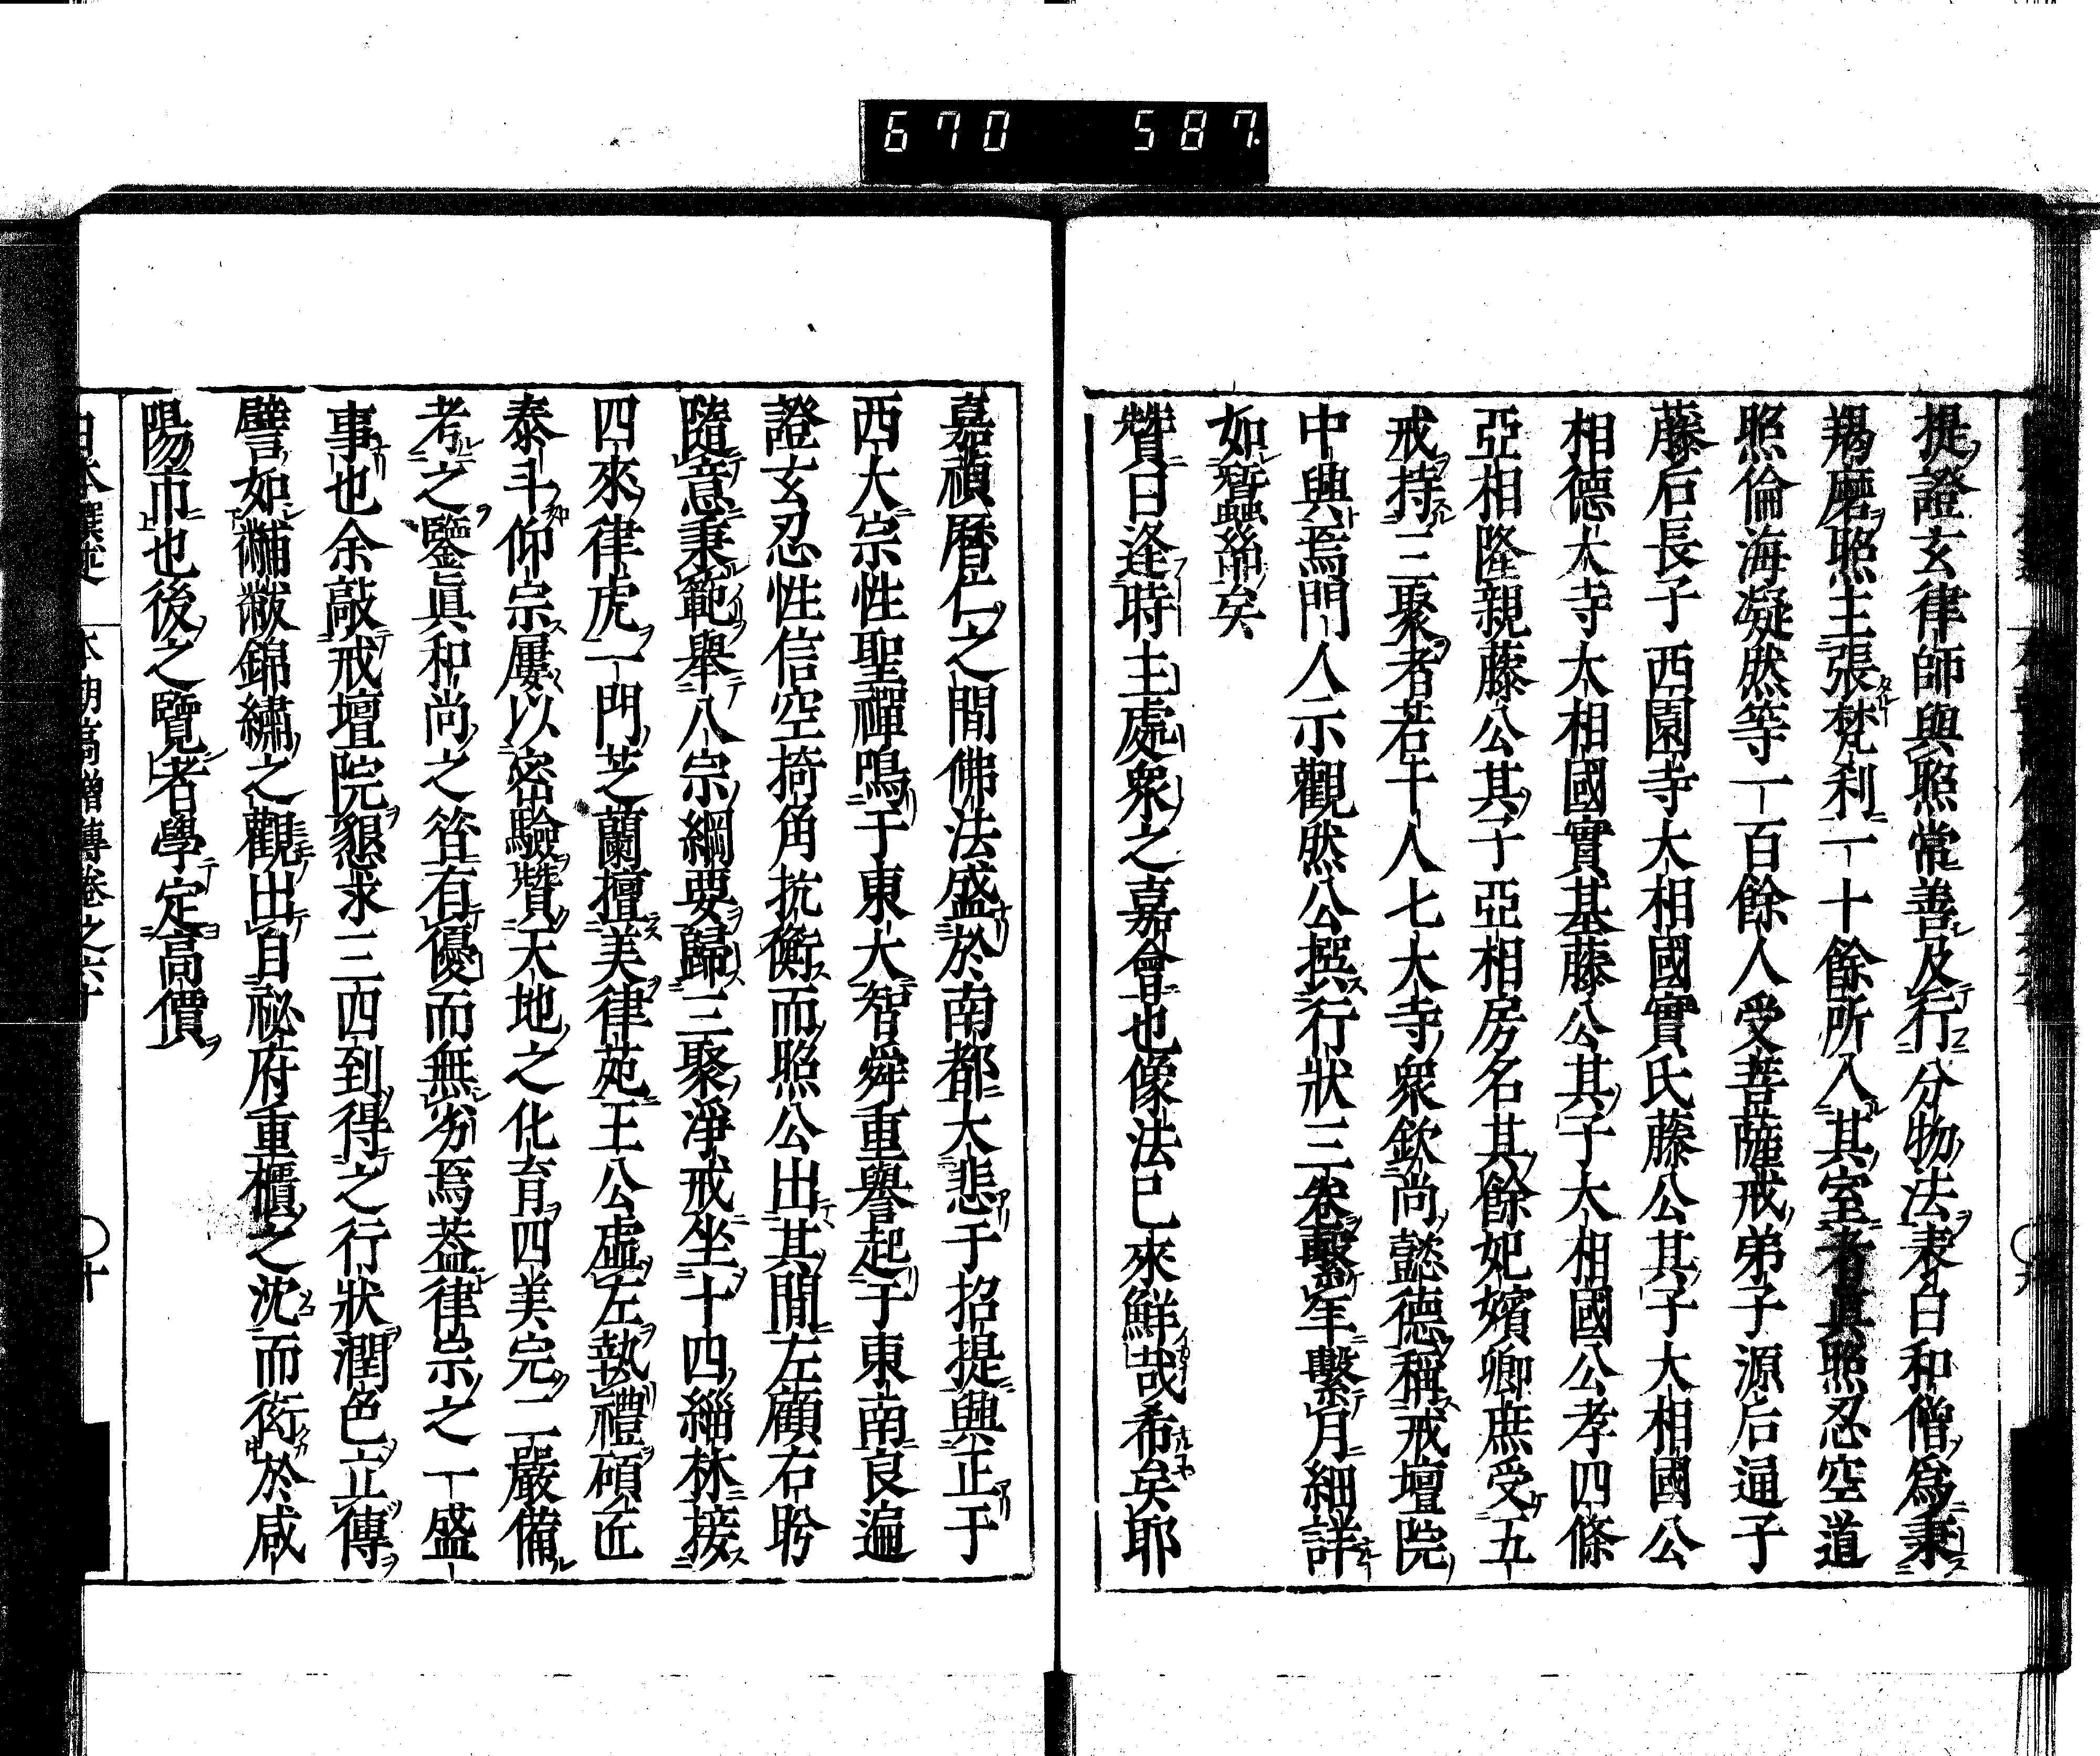 670 587
提證玄律師與照常善及行分物法表白和僧爲秉
羯磨照主張梵利一十餘所入其室者眞照忍空道
照倫海凝然等一百餘人受菩薩戒弟子源后逼子
藤后長子西園寺大相國實氏藤公其子大相國公
相德大寺太相國實基藤公其子大相國公孝四條
亞相隆親藤公其子亞相房名其餘妃嬪卿庶受五
戒持三聚者若干人七大寺衆欽尚懿德稱戒壇院
中興焉門人示觀然公撰行狀三卷繫年繫月細詳
如蠶絲矣
贊曰逢時主處衆之嘉會也像法已來鮮哉希矣耶
嘉禎曆仁之間佛法盛於南都大悲于招提興正于
西大宗性聖禪鳴于東大智舜重譽起于東南良遍
證玄忍性信空掎角抗衡而照公出其間左顧右盻
隨意秉範舉八宗綱要歸三聚淨戒坐十四緇林接
四來律虎一門芝蘭擅美律苑王公虛左執禮碩匠
泰斗仰宗屢以密驗贊天地之化育四美完二嚴備
考之鑒眞和尚之筵有優而無劣焉葢律宗之一盛
事也余敲戒壇院懇求三四到得之行狀潤色立傳
譬如黼黻錦繡之觀出自祕府重櫃之沈而衒於咸
陽市也後之覽者學定高價
日本撰述 本朝高僧傳卷之六十 〇十